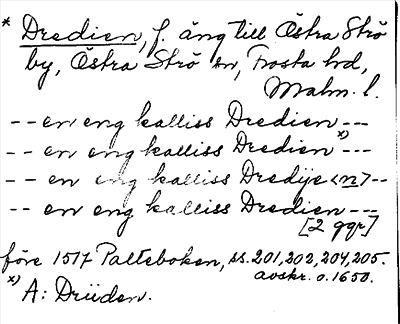 * Dredien, f. äng till Östra Strö
by, Östra Strö sn, Frosta hd,
Malm. l.
-- en eng kalliss Dredien ---
-- en eng kalliss Dredien x) ---
-- en eng kalliss Dredije <n> --
-- en eng kalliss Dredien ---
[2 ggr]
före 1517 Palteboken, ss. 201, 202, 204, 205.
avskr. o. 1650.
x) A: Drüden.